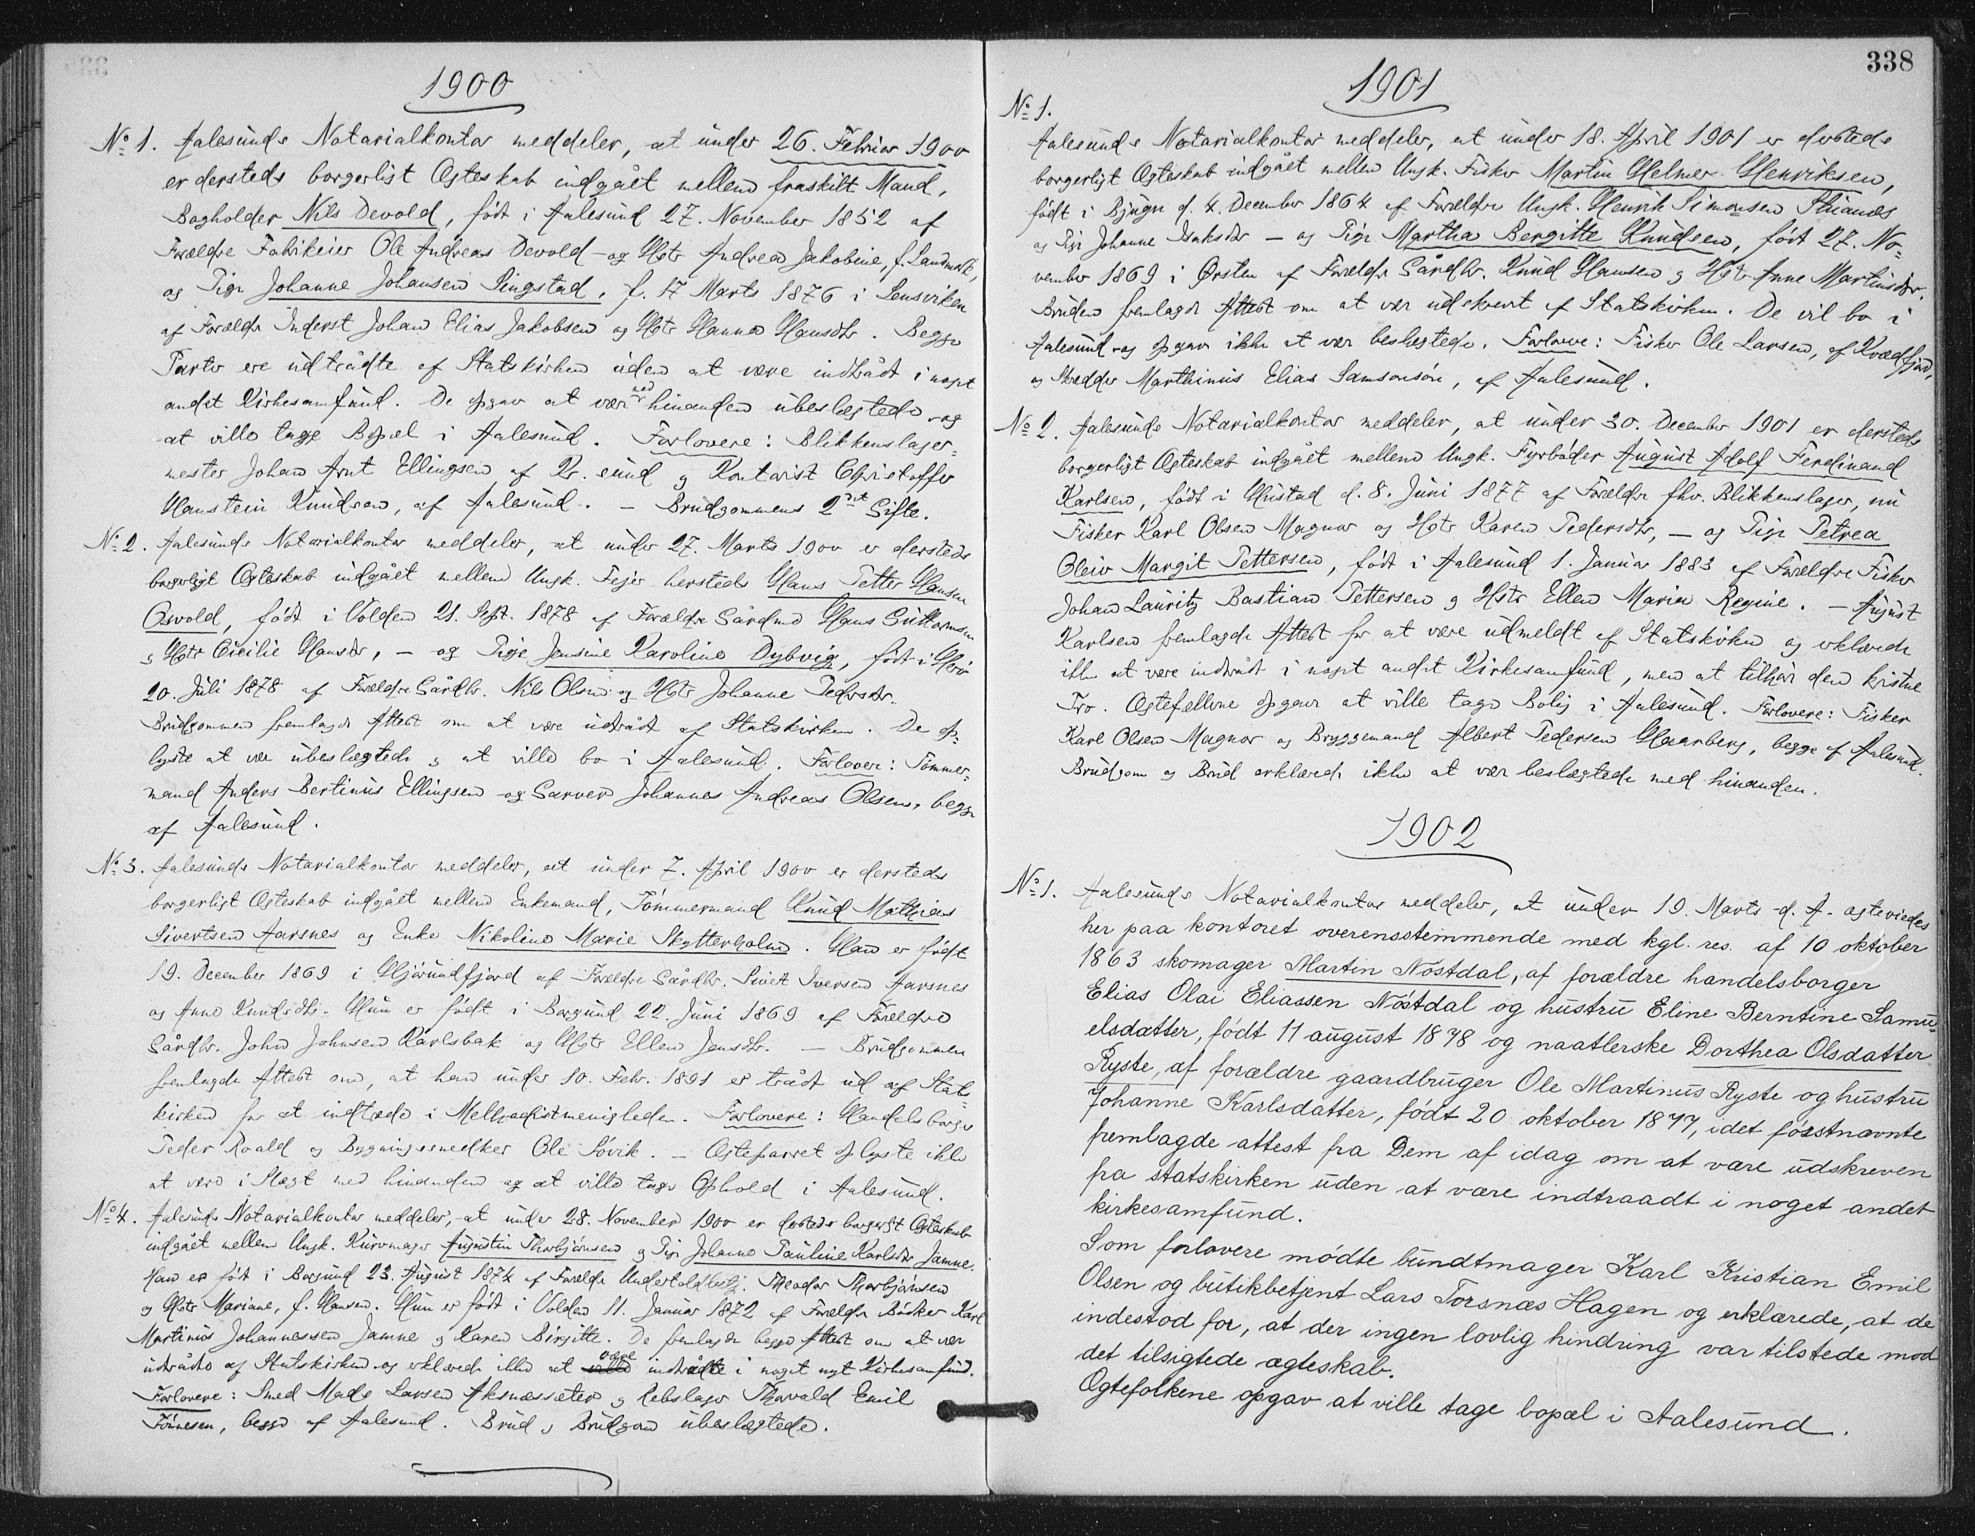 1900
No 1. Aalesunds Notarialkontor meddeler, at under 26. Februar 1900
er dersteds borgerligt Ægteskab indgået mellem fraskilt Mand,
Bogholder Nils Devold, født i Aalesund 27. November 1852 af
Forældre Fabrikeier Ole Andreas Devold og Hstr Andrea Jakobine, f. Landmark,
og Pige Johanne Johansen Ringstad, f. 17 Marts 1876 i
af Forældre Inderst Johan Elias Jakobsen og Hstr Hanna Hansdtr. Begge
Parter ere udtrådte af Statskirken uden at være indtrådt i noget
andet Kirkesamfund. De opgav at være med hinanden ubeslægtede og
at ville tage Bopæl i Aalesund. Forlovere: Blikkenslager-
mester Johan Arnt Ellingsen af Kr.sund og Kontorist Christoffer
Hanstein Knudsen, af Aalesund. — Brudgommens 2det Gifte.
No 2. Aalesunds Notarialkontor meddeler, at under 27. Marts 1900 er dersteds
borgerligt Ægteskab indgået mellem Ungk. Feier hersteds Hans Petter Hansen
Osvold, født i Volden 21. Spt. 1878 af Forældre Gårdmd Hans Guttormsen
og Hstr Cicilie Hansdtr, — og Pige Jensine Karoline Dybvig, født i Herø
20. Juli 1878 af Forældre Gårdbr. Nils Olsen og Hstr Johanne Pedersdtr.
Brudgommen fremlagde Attest om at være udtrådt af Statskirken. De op-
lyste at være ubeslægtede og at ville bo i Aalesund. Forlovere: Tømmer-
mand Anders Bertinus Ellingsen og Garver Johannes Andreas Olsen, begge
af Aalesund.
No 3. Aalesunds Notarialkontor meddeler, at under 7. April 1900 er dersteds
borgerligt Ægteskab indgået mellem Enkemand, Tømmermand Knud Mathias
Sivertsen Aarsnes og Enke Nikoline Marie Skytterholm. Han er født
19. December 1869 i Hjørundfjord af Forældre Gårdbr. Sivert Iversen Aarsnes
og Anne Knudsdtr. Hun er født i Borgund 22. Juni 1869 af Forældre
Gårdbr. John Johnsen Karlsbak og Hstr Ellen Jensdtr. — Brudgommen
fremlagde Attest om, at han under 10. Febr. 1891 er trådt ud af Stats-
kirken for at indtræde i Methodistmenigheden. Forlovere: Handelsborger
Peder Roald og Bygningssnedker Ole Søvik. — Ægteparret oplyste ikke
at være i Slægt med hinanden og at ville tage Ophold i Aalesund.
No 4. Aalesunds Notarialkontor meddeler, at under 28. November 1900 er dersteds borgerligt Ægteskab
indgået mellem Ungk. Kurvmager Augustin Thorbjørnsen og Pige Johanne Pauline Karlsdtr Jamne.
Han er født i Borgund 23. August 1874 af Forældre Theodor Thorbjørnsen
og Hstr Mariane, f. Hansen. Hun er født i Volden 11. Januar 1872 af Forældre Bødker Karl
Martinus Johannessen Jamne og Karen Birgitte. De fremlagde begge Attest om at være
udtrådte af Statskirken og erklærede ikke at være indtrådte i noget nyt Kirkesamfund.
Forlovere: Smed Mads Larsen Aksnessæter og Rebslager Thorvald Emil
Tønnesen, begge af Aalesund. Brud og Brudgom ubeslægtede.
338
1901
No 1.
Aalesunds Notarialkontor meddeler, at under 18. April 1901 er dersteds
borgerligt Ægteskab indgået mellem Ungk. Fisker Martin Helmer Henriksen,
født i Bjugn d. 4. December 1864 af Forældre Ungk. Henrik Simonsen
og Pige Johanne Isaksdtr — og Pige Martha Bergitte Knudsen, født 27. No-
vember 1869 i Ørsten af Forældre Gårdbr. Knud Hansen og Hstr Anne Martinsdtr.
Bruden fremlagde Attest om at være udskrevet af Statskirken. De vil bo i
Aalesund og opgav ikke at være beslægtede. Forlovere: Fisker Ole Larsen, af Kvædfjord,
og Skrædder Marthinus Elias Samsonsen, af Aalesund.
No 2. Aalesunds Notarialkontor meddeler, at under 30. December 1901 er dersteds
borgerligt Ægteskab indgået mellem Ungk. Fyrbøder August Adolf Ferdinand
Karlsen, født i Hustad d. 8. Juni 1877 af Forældre fhv. Blikkenslager, nu
Fisker Karl Olsen Magnar og Hstr Karen Pedersdtr, — og Pige Petrea
Oleiv Margit Pettersen, født i Aalesund 1. Januar 1883 af Forældre Fisker
Johan Lauritz Bastian Pettersen og Hstr Ellen Maria Regine. — August
Karlsen fremlagde Attest for at være udmeldt af Statskirken og erklærede
ikke at være indtrådt i noget andet Kirkesamfund, men at tilhøre den kristne
Tro. Ægtefellene opgav at ville tage Bolig i Aalesund. Forlovere: Fisker
Karl Olsen Magnar og Bryggemand Albert Pedersen Haarberg, begge af Aalesund.
Brudgom og Brud erklærede ikke at være beslægtede med hinanden.
1902
No 1. Aalesunds Notarialkontor meddeler, at under 19. Marts d. A. ægteviedes
her paa kontoret overensstemmende med kgl. res. af 10 oktober
1863 skomager Martin Nøstdal, af forældre handelsborger
Elias Olai Eliassen Nøstdal og hustru Eline Berntine Samu-
elsdatter, født 11 august 1878 og naatlerske Dorthea Olsdatter
Ryste, af forældre gaardbruger Ole Martinus Ryste og hustru
Johanne Karlsdatter, født 20 oktober 1877, idet førstnævnte
fremlagde attest fra Dem af idag om at være udskreven
fra statskirken uden at være indtraadt i noget andet
kirkesamfund.
Som forlovere mødte bundtmager Karl Kristian Emil
Olsen og butikbetjent Lars Torsnæs Hagen og erklærede, at de
indestod for, at der ingen lovlig hindring var tilstede mod
det tilsigtede ægteskab.
Ægtefolkene opgav at ville tage bopæl i Aalesund.